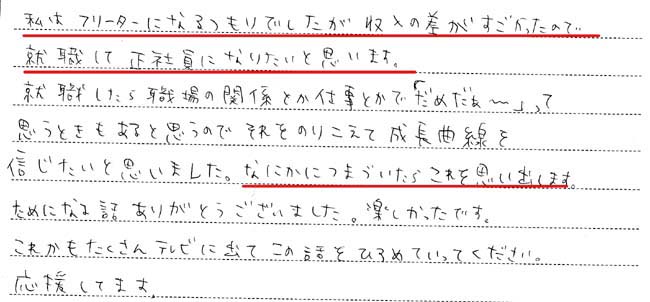 私はフリーターになるつもりでしたが収入の差がすごかったので
就職して正社員になりたいと思います。
就職したら職場の関係とか仕事とかで「だめだぁ〜」って
思うときもあると思うのでそれをのりこえて成長曲線を
信じたいと思いました。なにかにつまづいたらこれを思い出します。
ためになる話ありがとうございました。楽しかったです。
これかもたくさんテレビに出てこの話をひろめていってください。
応援してます